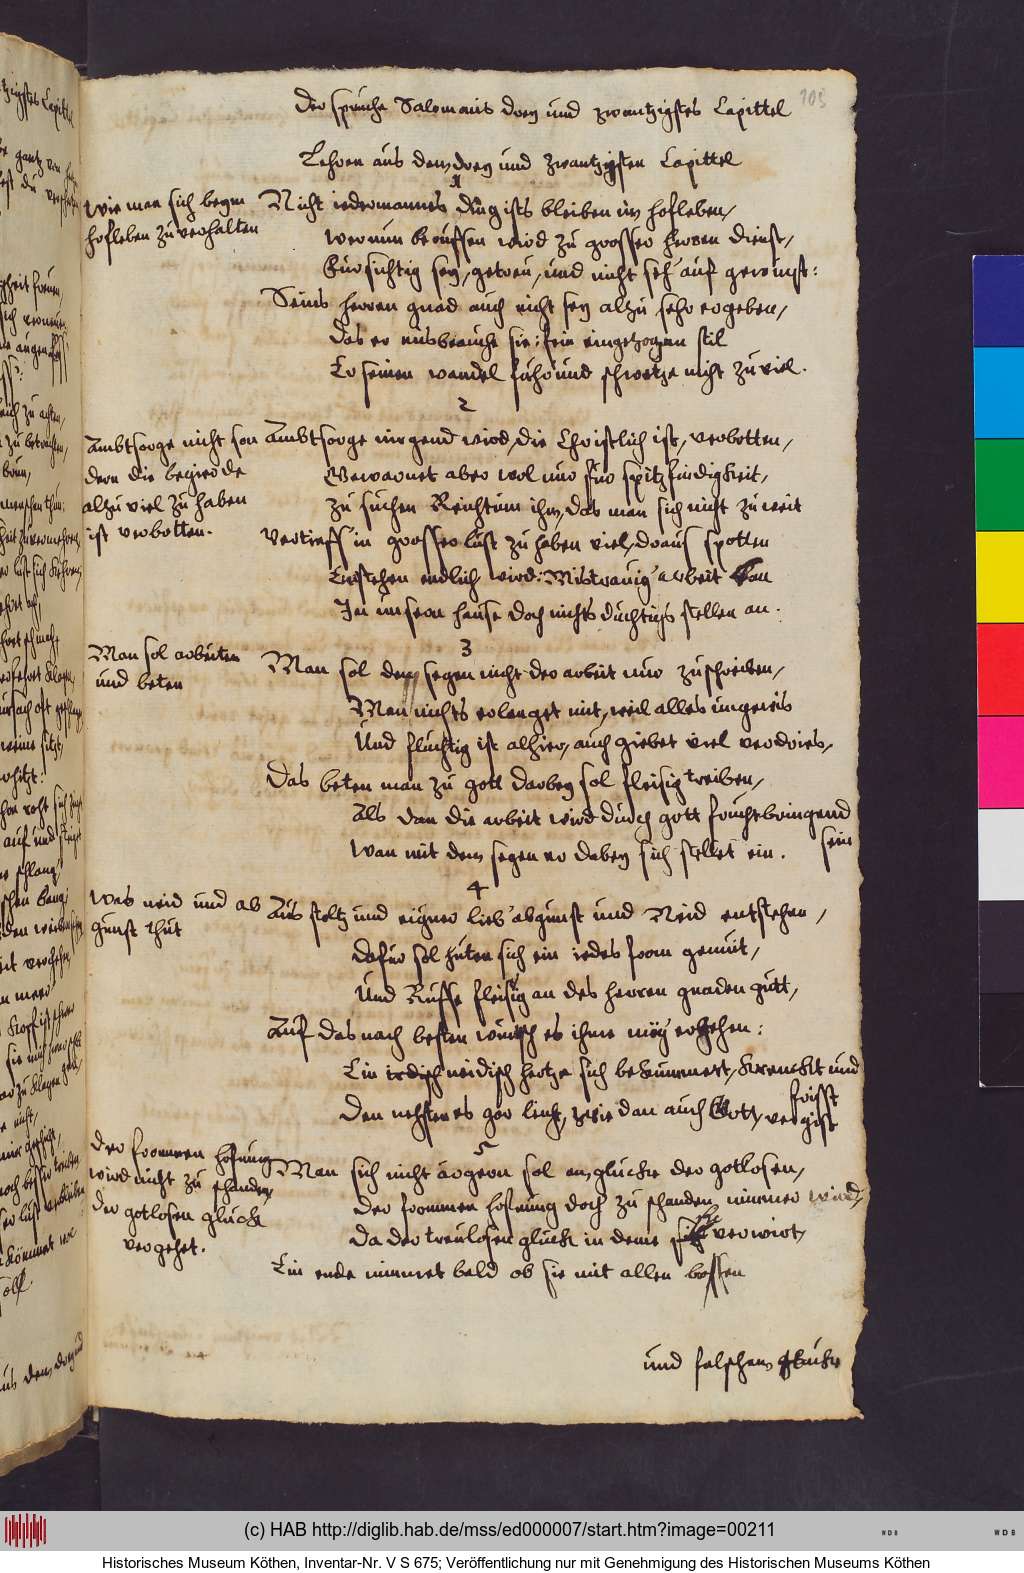 103
Der sprüche Salomonis drey und zwantzigstes Capittel
Lehren aus dem drey und zwantzigsten Capittel
1
Wie man sich beym
hofleben zu verhalten
Nicht iedermannes ding ists bleiben im hofleben,
wer nun beruffen wird zu grosser herren dienst,
Fursichtig sey, getreu, und nicht seh' auf gewinst:
Seins herren gnad auch nicht sey alzu sehr ergeben,
Das er misbrauche sie: fein eingezogen stil
Er seinen wandel führ' und schwetze nicht zu viel.
2
Ambtsorge nicht son
dern die begierde
alzu viel zu haben
ist verbotten.
Ambtsorge nirgend wird, die Christlich ist, verbotten,
Gewarnet aber wol nur fur spitzfindigkeit,
zu suchen Reichtum ihm, das man sich nicht zu weit
vertieff' in grosser lust zu haben viel, draus spotten
Entstehen endlich wird: Mistrauig' arbeit kan
In unserm hause doch nichts duchtigs stellen an.
3
Man sol arbeiten
und beten
Man sol dem segen nicht der arbeit nur zuschreiben,
Man nichts erlanget mit, weil alles ungewis
Und fluchtig ist alhier, auch giebet viel verdries,
Das beten man zu gott darbey sol fleisig treiben,
Als dan die arbeit wird durch gott fruchtbringend
sein
Wan mit dem segen er dabey sich stellet ein.
4
Was neid und ab
gunst thut
Aus stoltz und eigner lieb' abgunst und Neid entstehen,
Dafur sol huten sich ein iedes from gemut,
Und Ruffe fleisig an des herren gnaden gutt,
Auf das nach besten wunsch es ihme mög' ergehen:
Ein irdisch neidisch hertze sich bekummert, krenckt und
frisst
Den nehsten es gar leicht, wie dan auch Gott, vergist
5
Der frommen hofnung
wird nicht zu schanden,
der gotlosen gluck
vergehet.
Man sich nicht ärgern sol am glucke der gotlosen,
Der frommen hofnung doch zu schanden nimmer wird,
Da der treulosen gluck in deme sich verwirt,
Ein ende nimmet bald ob sie mit allen bossen
und falschem glucke
(c) HAB http://diglib.hab.de/mss/ed000007/start.htm?image=00211
WDB
WDB
Historisches Museum Köthen, Inventar-Nr. V S 675; Veröffentlichung nur mit Genehmigung des Historischen Museums Köthen